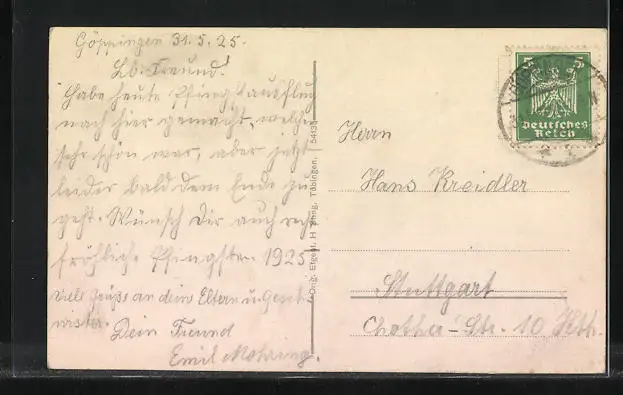 Göppingen 31.5.25.
Lb. Freund!
Habe heute Pfingstausflug
nach hier gemacht, welcher
sehr schön war, aber jetzt
leider bald dem Ende zu
geht. Wünsch Dir auch recht
fröhliche Pfingsten 1925
viele Grüße an dein Eltern u. Gesch
wister.
Dein Freund
Emil Mohring.
Orig. Eigent. H. Tübingen. 5413
5 5
Deutsches
Reich
Herrn
Hans Kreidler
Stuttgart
Str. 10